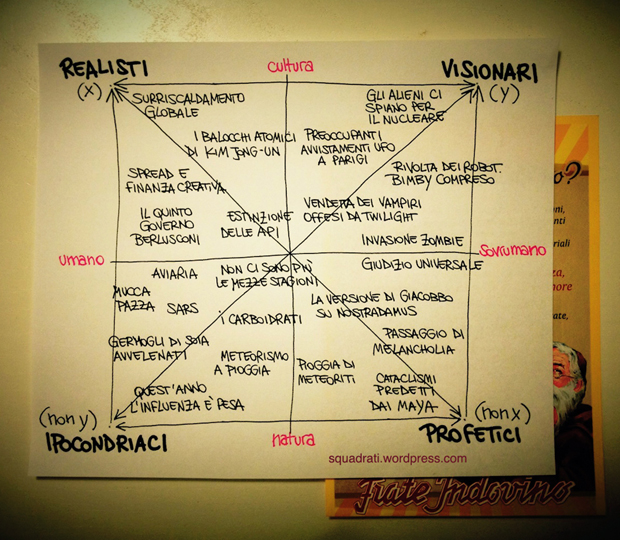 REALISTI
cultura
VISIONARI
(x)
(y)
SURRISCALDAMENTO
GLOBALE
GLI ALIENI CI
SPIANO PER
IL NUCLEARE
I BALOCCHI ATOMICI
DI KIM JONG-UN
PREOCCUPANTI
AVVISTAMENTI UFO
A PARIGI
SPREAD E
FINANZA CREATIVA
RIVOLTA DEI ROBOT.
BIMBY COMPRESO
IL QUINTO
GOVERNO
BERLUSCONI
ESTINZIONE
DELLE API
VENDETTA DEI VAMPIRI
OFFESI DA TWILIGHT
INVASIONE ZOMBIE
umano
sovrumano
AVIARIA
NON CI SONO PIÙ
LE MEZZE STAGIONI
GIUDIZIO UNIVERSALE
MUCCA
PAZZA
SARS
I CARBOIDRATI
LA VERSIONE DI GIACOBBO
SU NOSTRADAMUS
GERMOGLI DI SOIA
AVVELENATI
METEORISMO
A PIOGGIA
PIOGGIA DI
METEORITI
PASSAGGIO DI
MELANCHOLIA
QUEST'ANNO
L'INFLUENZA È PESA
CATACLISMI
PREDETTI
DAI MAYA
(non y)
(non x)
IPOCONDRIACI
natura
PROFETICI
squadrati.wordpress.com
o?
Frate Indovino